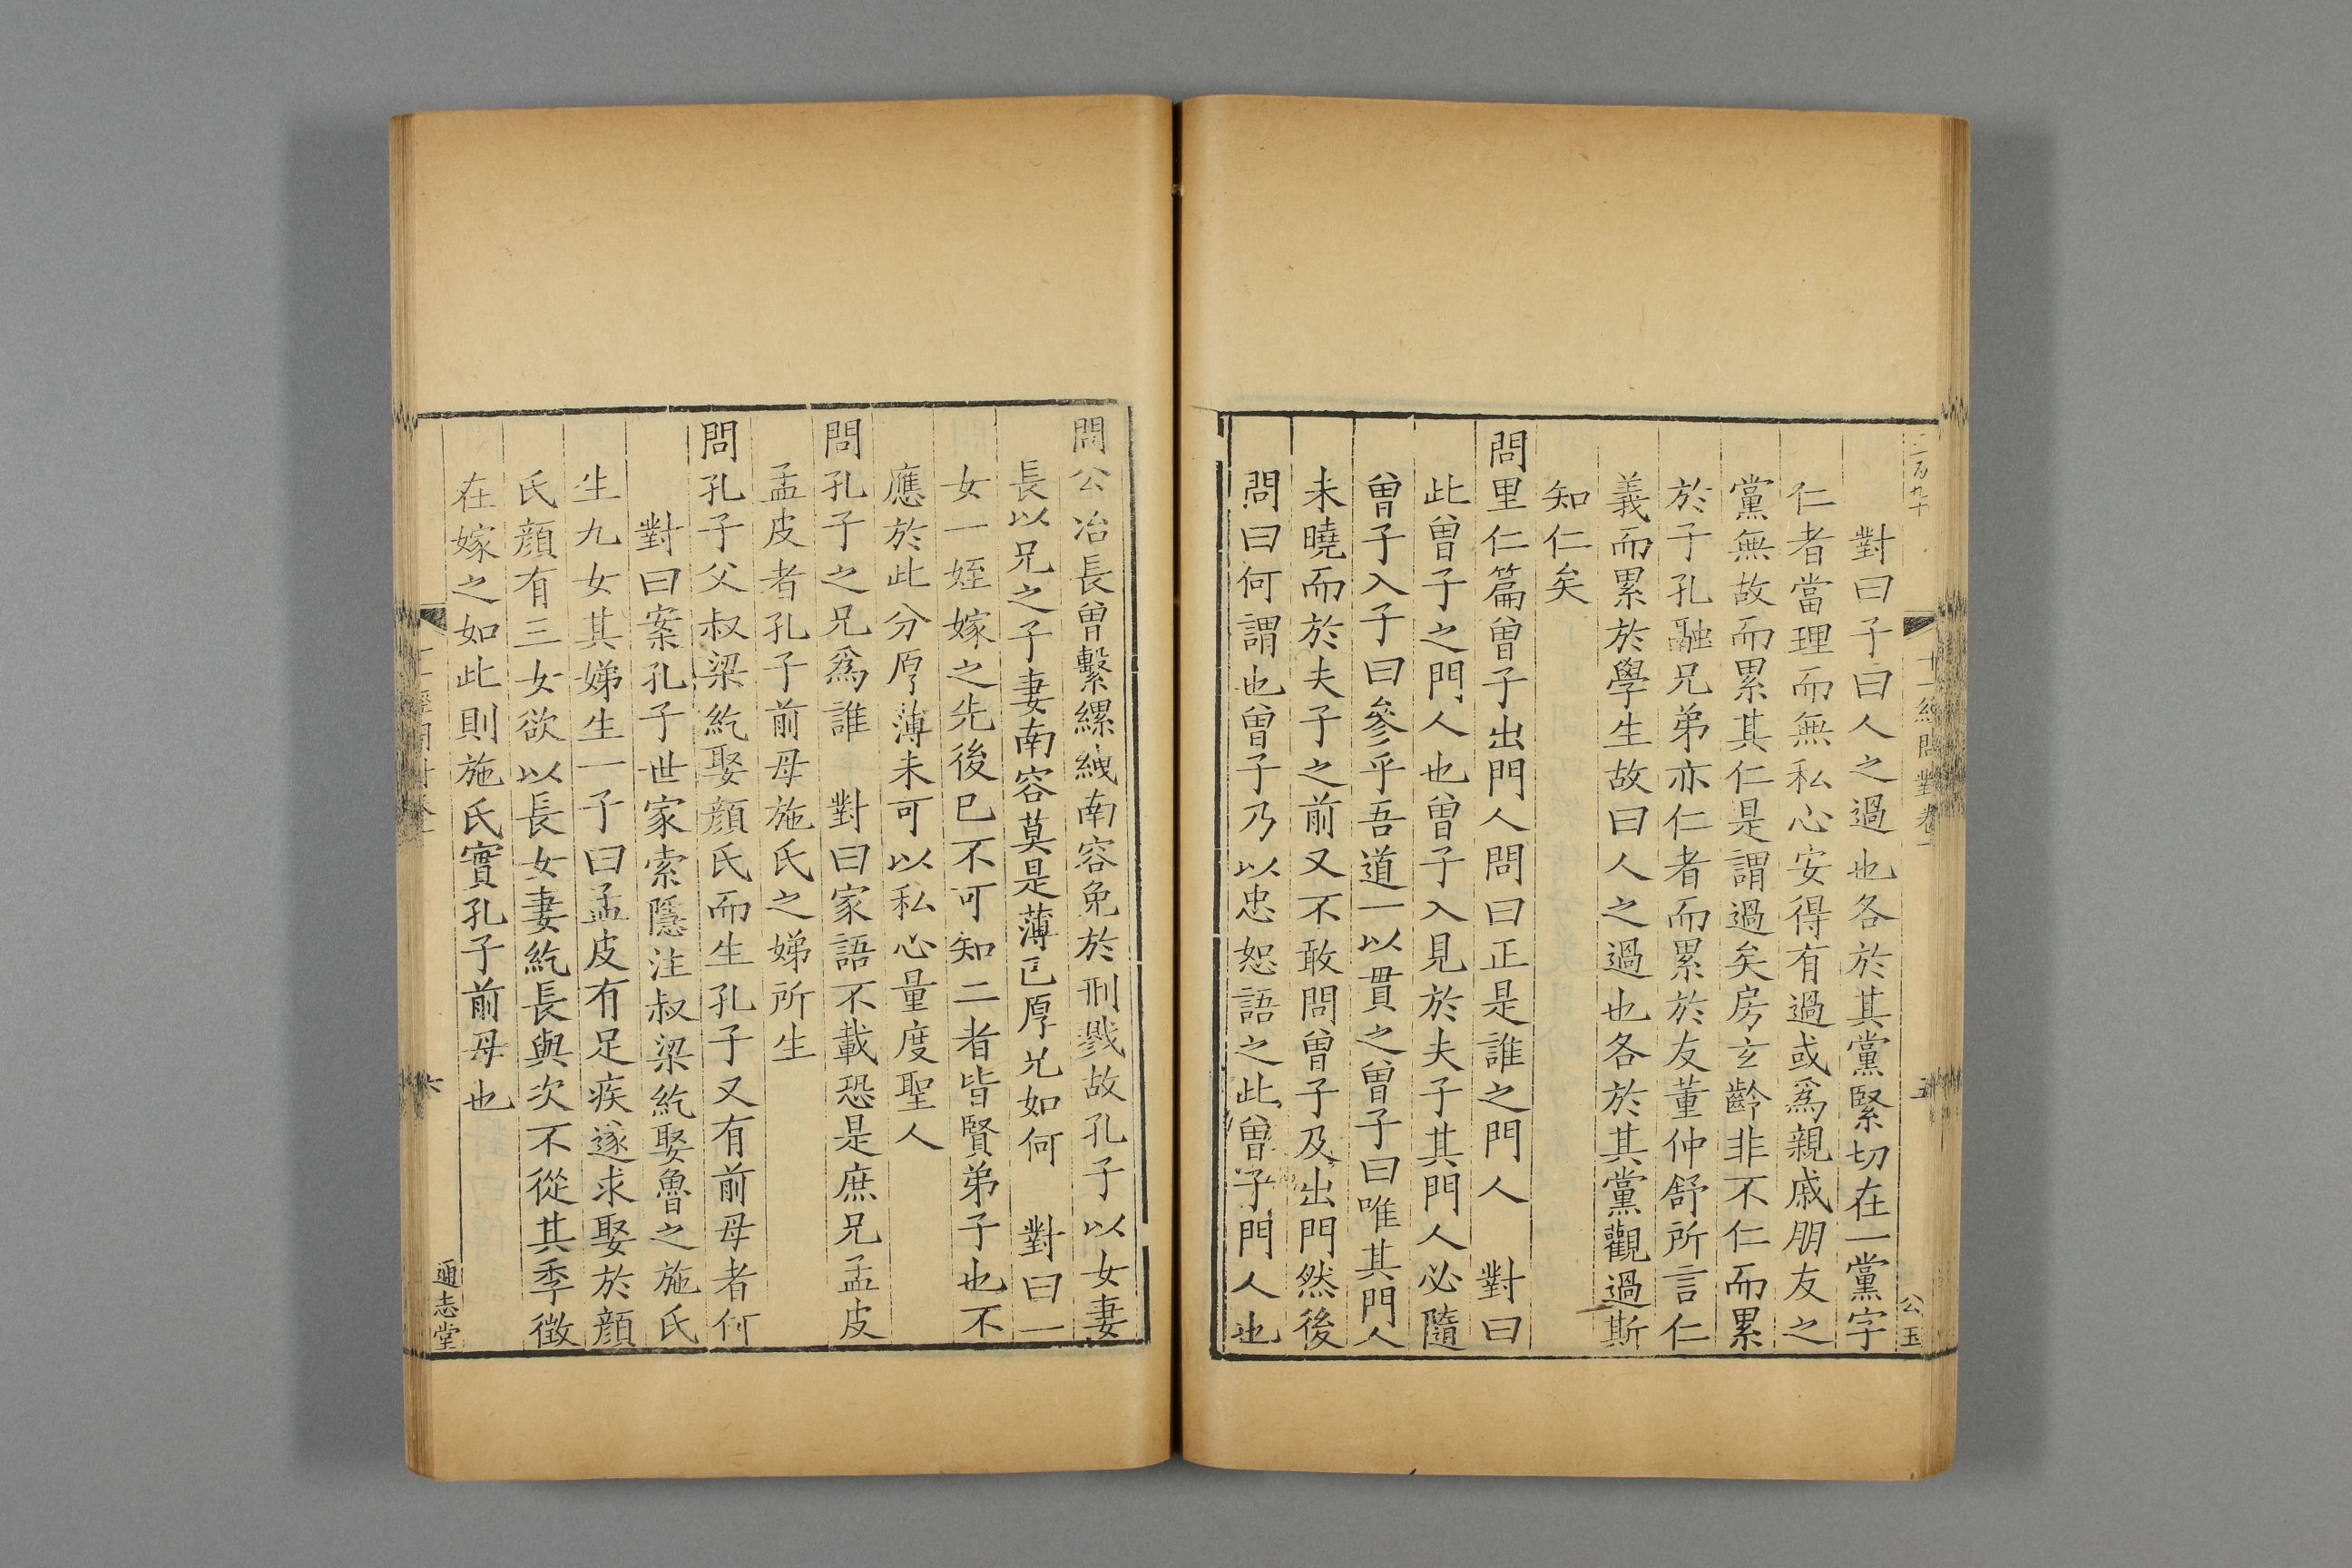 二百九十
十一經問對卷一
五
公玉
對曰子曰人之過也各於其黨緊切在一黨字
仁者當理而無私心安得有過或爲親戚朋友之
黨無故而累其仁是謂過矣房玄齡非不仁而累
於子孔融兄弟亦仁者而累於友董仲舒所言仁
義而累於學生故曰人之過也各於其黨觀過斯
知仁矣
問里仁篇曾子出門人問曰正是誰之門人 對曰
此曾子之門人也曾子入見於夫子其門人必隨
曾子入子曰參乎吾道一以貫之曾子曰唯其門人
未曉而於夫子之前又不敢問曾子及出門然後
問曰何謂也曾子乃以忠恕語之此曾子門人也
問公冶長曾繫縲絏南容免於刑戮故孔子以女妻
長以兄之子妻南容莫是薄己厚兄如何 對曰一
女一姪嫁之先後已不可知二者皆賢弟子也不
應於此分厚薄未可以私心量度聖人
問孔子之兄爲誰 對曰家語不載恐是庶兄孟皮
孟皮者孔子前母施氏之娣所生
問孔子父叔梁紇娶顔氏而生孔子又有前母者何
對曰案孔子世家索隱注叔梁紇娶魯之施氏
生九女其娣生一子曰孟皮有足疾遂求娶於顔
氏顔有三女欲以長女妻紇長與次不從其季徵
在嫁之如此則施氏實孔子前母也
六
通志堂